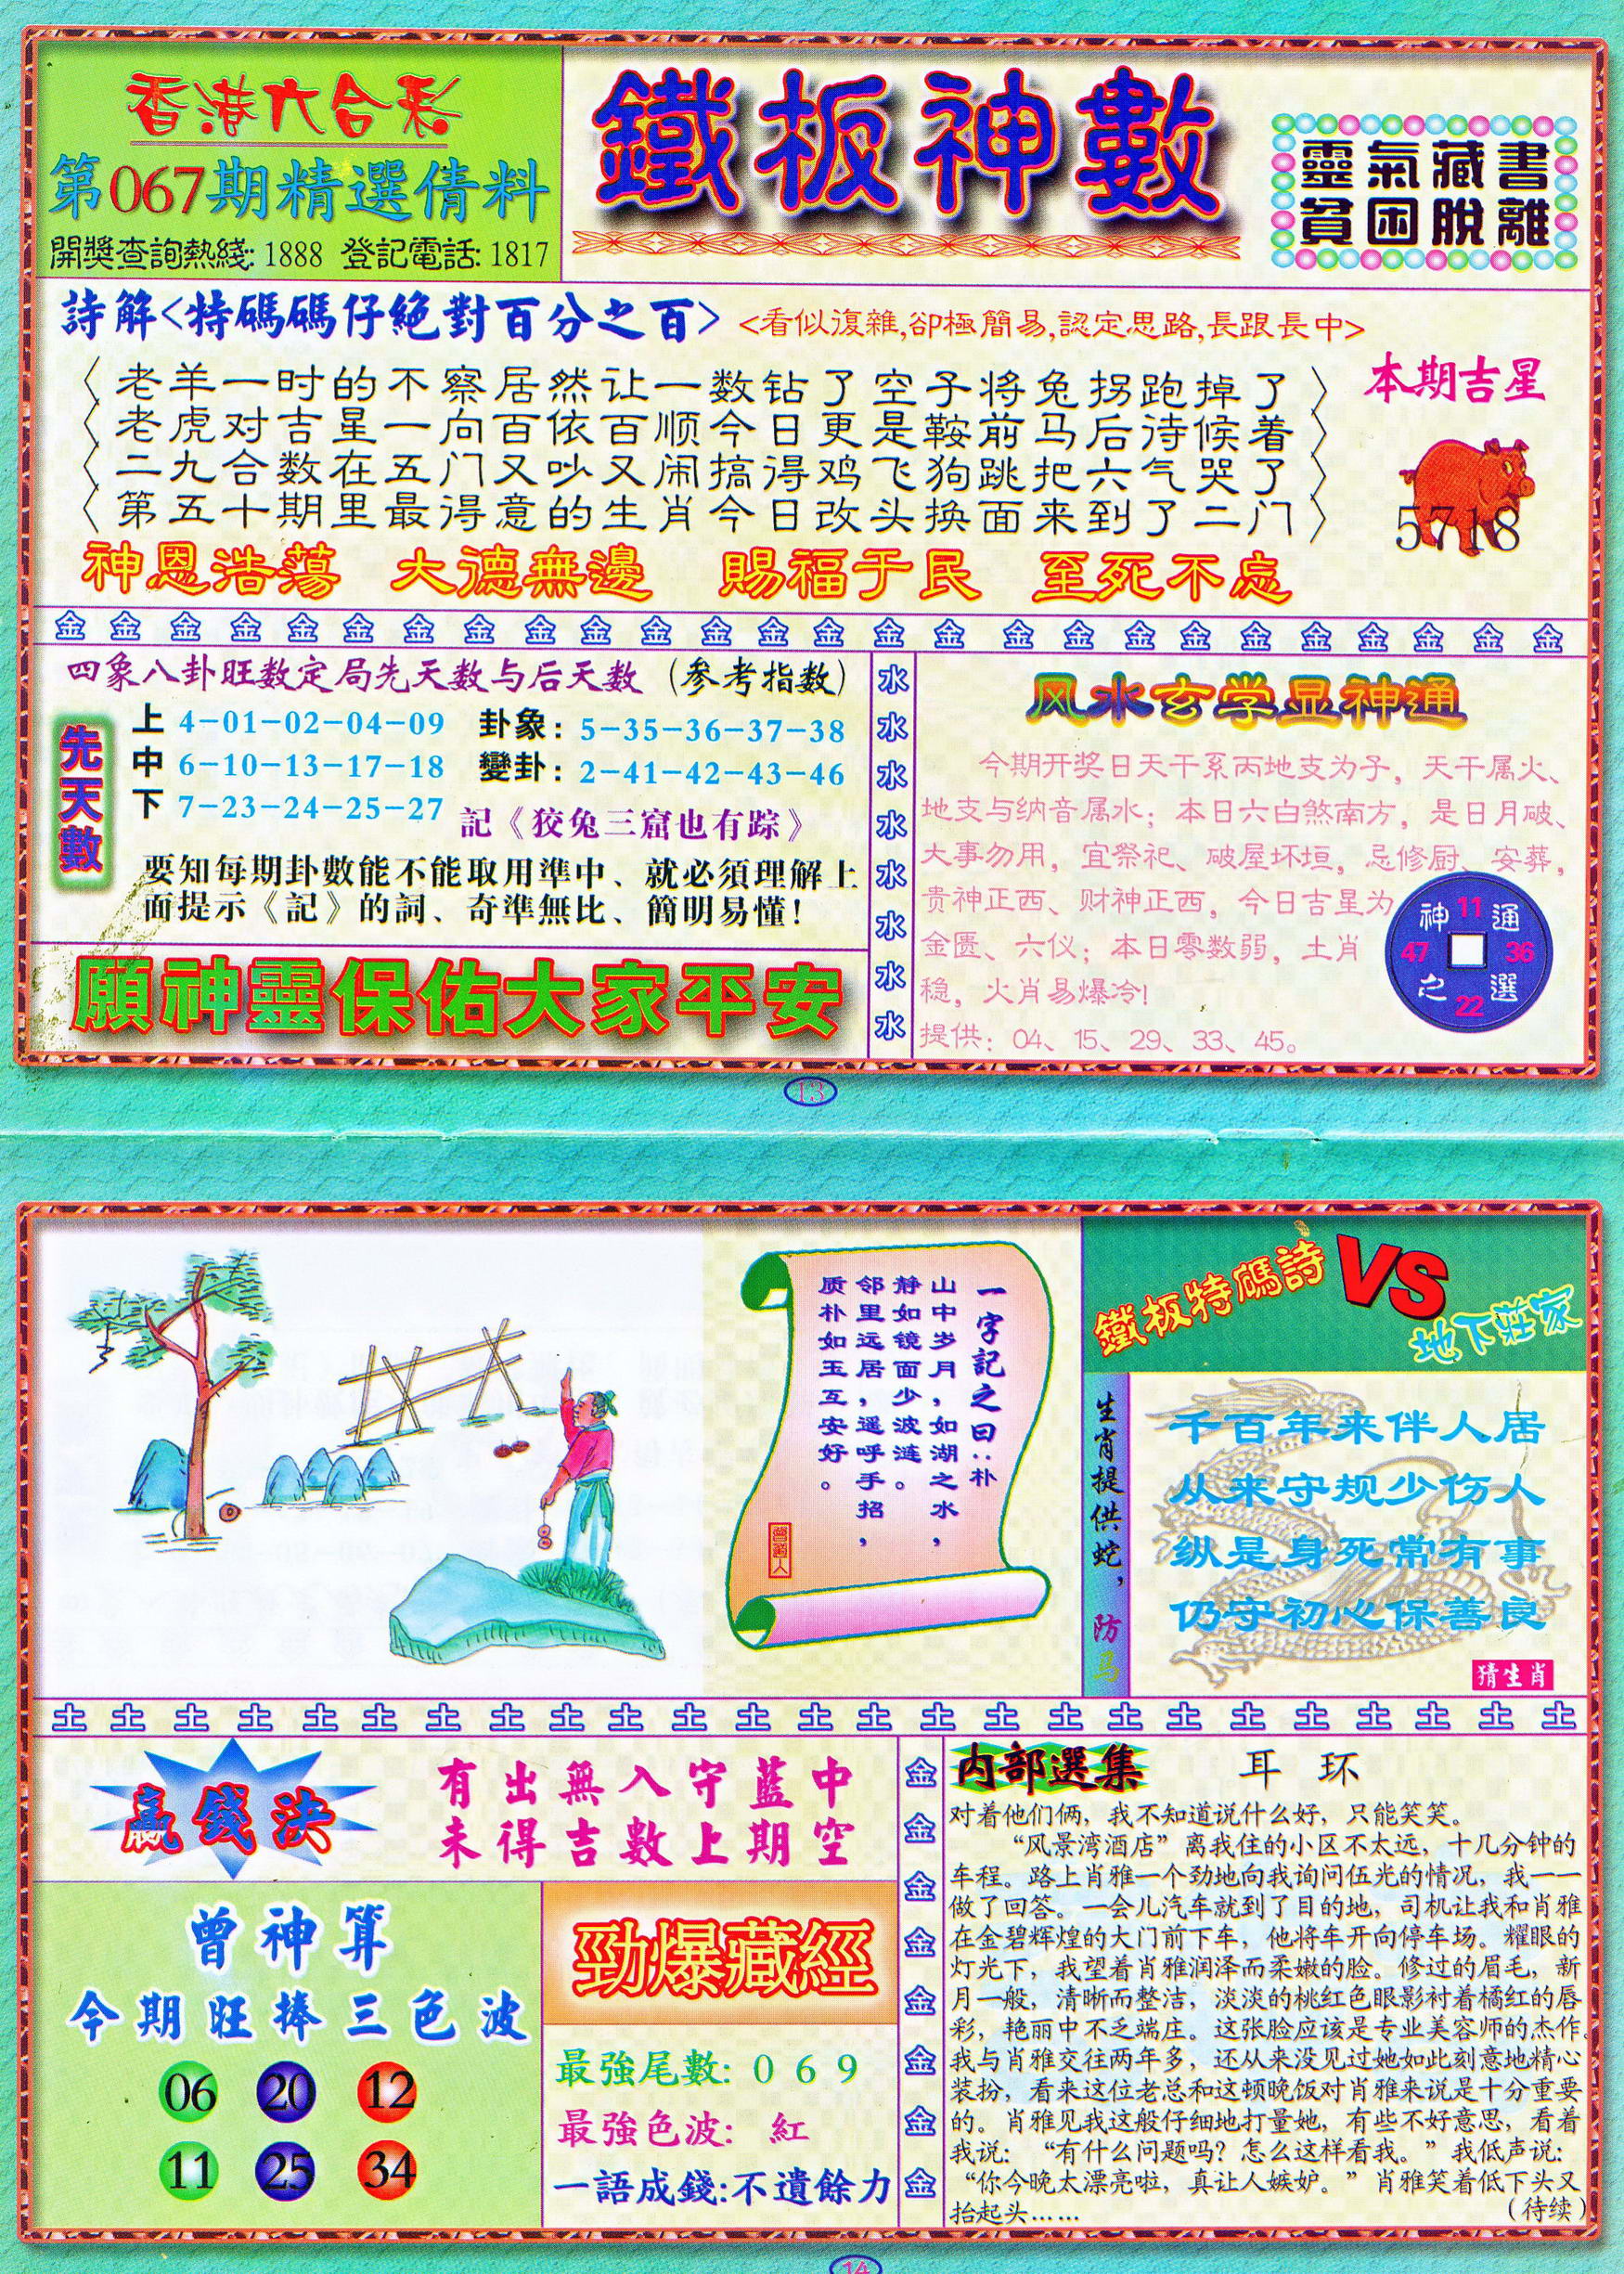 香港六合彩
第067期精選倩料
開獎查詢熱綫: 1888 登記電話: 1817
鐵板神數
靈氣藏書
貧困脫離
詩解<特碼碼仔絕對百分之百>
<看似復雜,卻極簡易,認定思路,長跟長中>
老羊一时的不察居然让一数钻了空子将兔拐跑掉了
老虎对吉星一向百依百顺今日更是鞍前马后诗候着
二九合数在五门又吵又闹搞得鸡飞狗跳把六气哭了
第五十期里最得意的生肖今日改头换面来到了二门
本期吉星
5718
神恩浩蕩 大德無邊 賜福于民 至死不忘
金 金 金 金 金 金 金 金 金 金 金 金 金 金 金 金 金 金 金 金 金 金 金 金 金 金
四象八卦旺数定局先天数与后天数 (参考指数)
先天數
上 4-01-02-04-09 卦象: 5-35-36-37-38
中 6-10-13-17-18 變卦: 2-41-42-43-46
下 7-23-24-25-27 記《狡兔三窟也有踪》
要知每期卦數能不能取用準中、就必須理解上
面提示《記》的詞、奇準無比、簡明易懂!
願神靈保佑大家平安
水
水
水
水
水
水
水
水
风水玄学显神通
今期开奖日天干系丙地支为子，天干属火、
地支与纳音属水；本日六白煞南方，是日月破、
大事勿用，宜祭祀、破屋坏垣，忌修厨、安葬，
贵神正西、财神正西，今日吉星为
金匮、六仪；本日零数弱，土肖
稳，火肖易爆冷!
提供：04、15、29、33、45。
神 11 通
47 36
之 22 選
13
一字記之曰:朴
山中岁月，如湖之水，
静如镜面少波涟。
邻里远居，遥呼手招，
质朴如玉互安好。
曾道人
鐵板特碼詩
VS
地下莊家
生肖提供蛇，防马
千百年来伴人居
从来守规少伤人
纵是身死常有事
仍守初心保善良
猜生肖
土 土 土 土 土 土 土 土 土 土 土 土 土 土 土 土 土 土 土 土 土 土 土 土 土
赢錢決
有出無入守藍中
未得吉數上期空
曾神算
今期旺捧三色波
06 20 12
11 25 34
勁爆藏經
最強尾數: 0 6 9
最強色波: 紅
一語成錢:不遺餘力
金
金
金
金
金
金
金
金
内部選集 耳 环
对着他们俩，我不知道说什么好，只能笑笑。
“风景湾酒店”离我住的小区不太远，十几分钟的
车程。路上肖雅一个劲地向我询问伍光的情况，我一一
做了回答。一会儿汽车就到了目的地，司机让我和肖雅
在金碧辉煌的大门前下车，他将车开向停车场。耀眼的
灯光下，我望着肖雅润泽而柔嫩的脸。修过的眉毛，新
月一般，清晰而整洁，淡淡的桃红色眼影衬着橘红的唇
彩，艳丽中不乏端庄。这张脸应该是专业美容师的杰作。
我与肖雅交往两年多，还从来没见过她如此刻意地精心
装扮，看来这位老总和这顿晚饭对肖雅来说是十分重要
的。肖雅见我这般仔细地打量她，有些不好意思，看着
我说：“有什么问题吗？怎么这样看我。”我低声说：
“你今晚太漂亮啦，真让人嫉妒。”肖雅笑着低下头又
抬起头…… (待续)
14